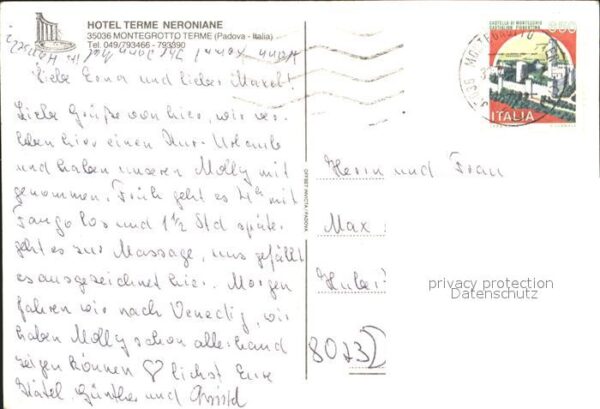 HOTEL TERME NERONIANE
35036 MONTEGROTTO TERME (Padova - Italia)
Tel. 049/793466 - 793390
Liebe Erna und lieber Maxel!
Liebe Grüße von hier, wir ver-
leben hier einen Kur-Urlaub
und haben unseren Molly mit
genommen. Früh geht es mit
Fango los und 1½ Std später
geht es zur Massage, uns gefällt
es ausgezeichnet hier. Morgen
fahren wir nach Venedig, wir
haben Molly schon allerhand
zeigen können ♡ lichst Eure
Günther und
OFFSET INVICTA PADOVA
CASTELLO DI MONTECCHIO
CASTIGLION FIORENTINO
ITALIA
Herrn und Frau
Max
Huber
privacy protection
Datenschutz